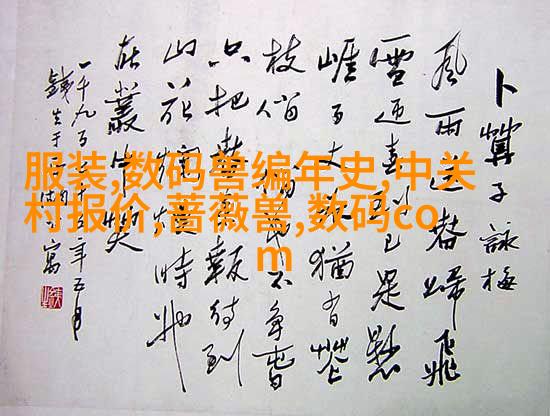 卜算子 詠梅
风雨送春歸飛
雪迎春到已是懸
崖百丈冰猶有花
枝俏俏也不爭春
只把春來報待到
山花爛漫時她
在叢中笑
一千九百年五月
服装,数码兽编年史,中关
村报价,蔷薇兽,数码co
m